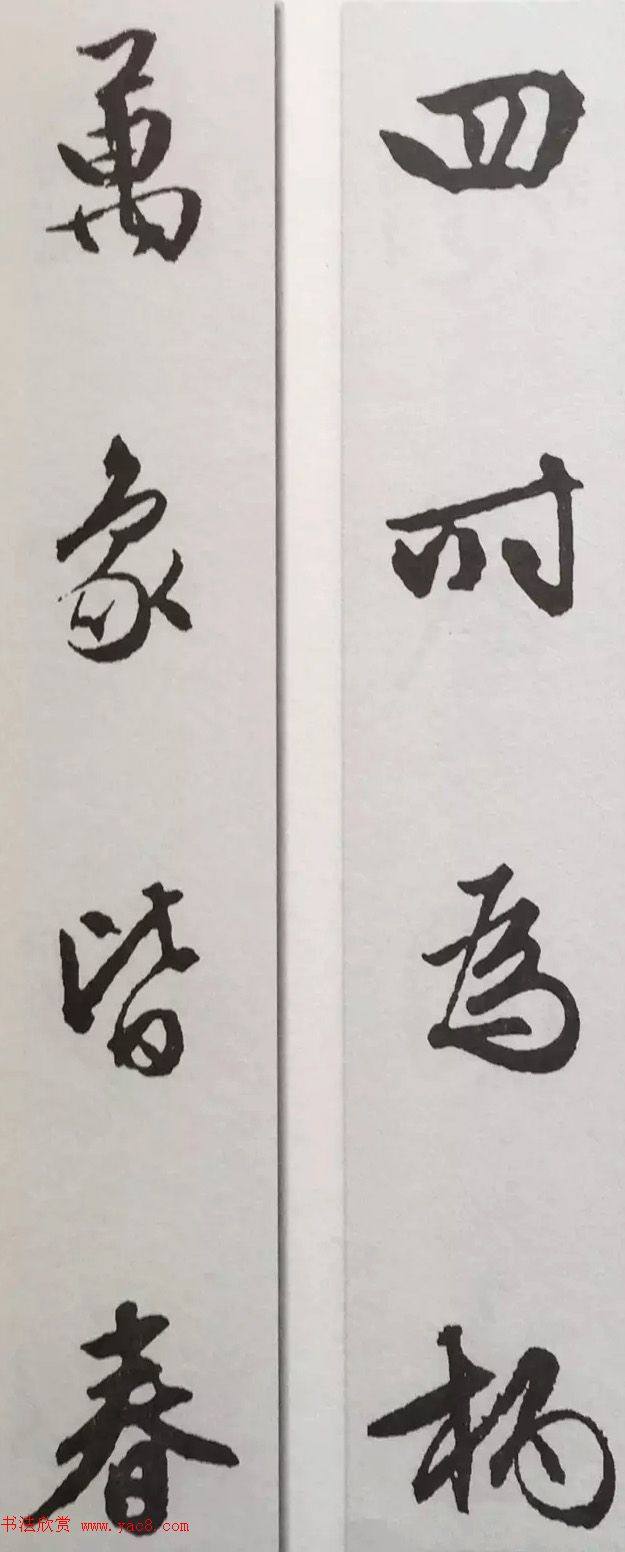 四时为柄
萬象皆春
书法欣赏 www.yac8.com